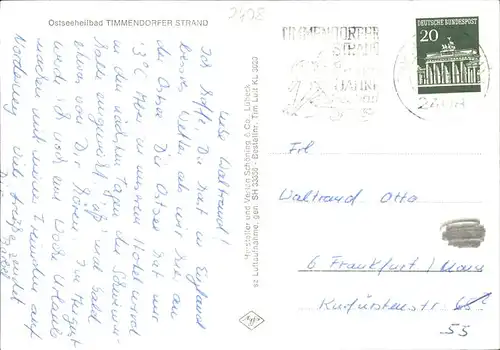 Ostseeheilbad TIMMENDORFER STRAND
2408
TIMMENDORFER
STRAND
JAHRE
DEUTSCHE BUNDESPOST
20
2408
Liebe Waltraud!
Ich hoffe, Du hast in England
besseres Wetter als wir hier an
der Ostsee. Die Ostsee hat nur
13°C. Aber in unserem Hotel wird
in den nächsten Tagen das Schwimm-
bad
und bald
von Dir hören. Im August
werde ich noch eine Woche Urlaub
machen mit meinen Freunden auf
Norderney. Viele Grüße sendet
Dir
Hersteller und Verlag Schöning & Co., Lübeck
sz Luftaufnahme, gen. SH 33330 - Bestellnr. Tim Luft KL 3693
Frl
Waltraud Otto
6 Frankfurt/Main
Kurfürstenstr.
55